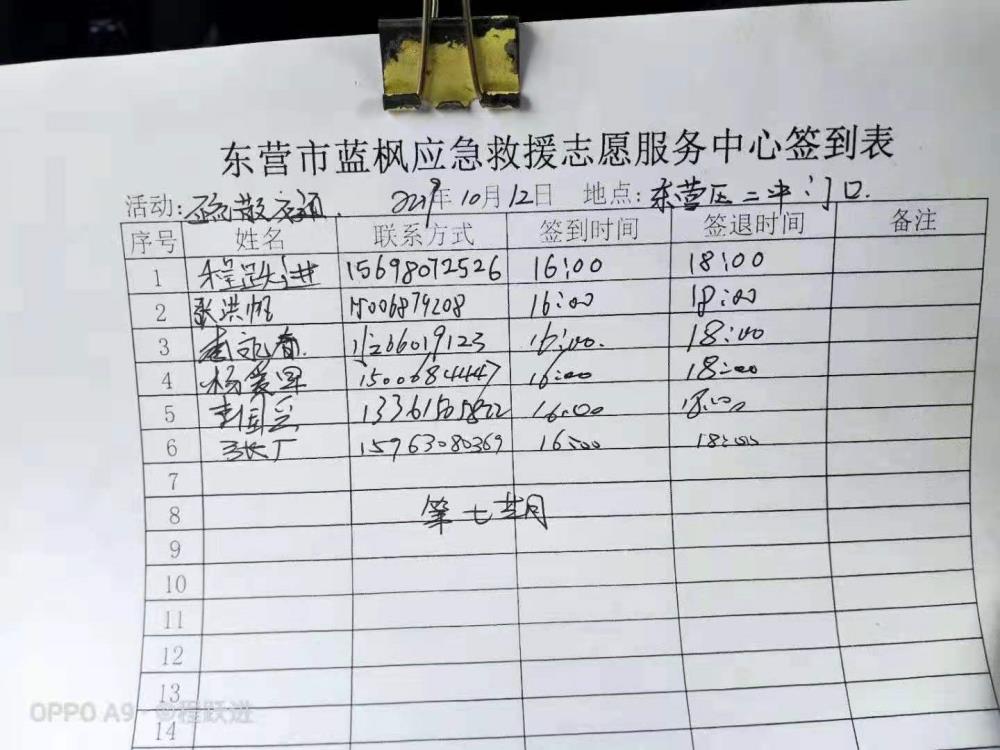 东营市蓝枫应急救援志愿服务中心签到表
活动: 2019年10月12日 地点:东营区二中门口.
序号 姓名 联系方式 签到时间 签退时间 备注
1 程跃进 15698072526 16:00 18:00
2 张洪帆 15006879208 16:00 18:00
3 16:00. 18:00
4 杨爱军 15006844447 16:00 18:00
5 16:00 18:00
6 张广 15963080369 16:00 18:00
7
8 第七期
9
10
11
12
13
14
OPPO A9 · @程跃进